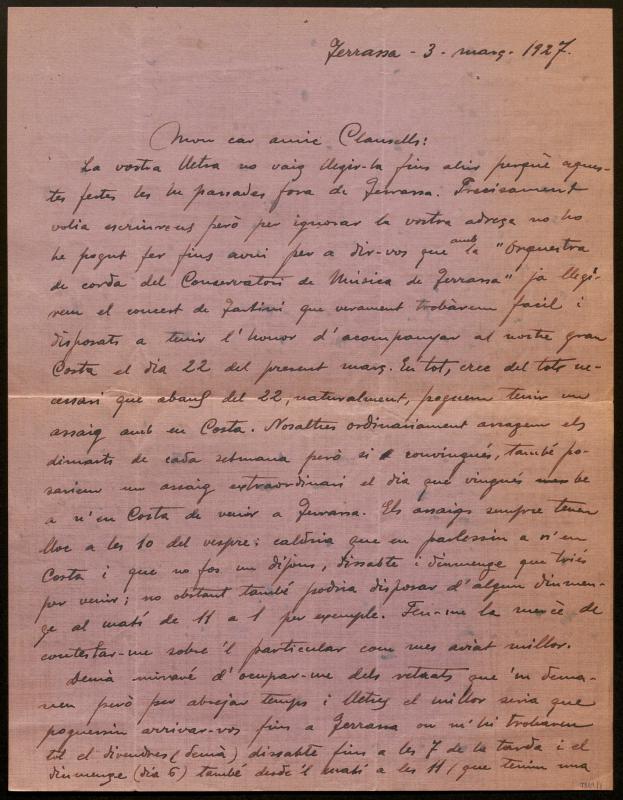 Terrassa - 3 - març - 1927.
Mon car amic Clausells:
La vostra lletra no vaig llegir-la fins ahir perquè aques-
tes festes les he passades fora de Terrassa. Precisament
volia escriureus però per ignorar la vostra adreça no ho
he pogut fer fins avui per a dir-vos que amb la "Orquestra
de corda del Conservatori de Música de Terrassa" ja llegi-
rem el concert de Tartini que verament trobàrem facil i
disposats a tenir l'honor d'acompanyar al nostre gran
Costa el dia 22 del present març. En tot, crec del tot ne-
cessari que abans del 22, naturalment, poguem tenir un
assaig amb en Costa. Nosaltres ordinariament assagem els
dimarts de cada setmana però si convingués, també po-
sariem un assaig extraordinari el dia que vingués mes be
a n'en Costa de venir a Terrassa. Els assaigs sempre tenen
lloc a les 10 del vespre; caldria que en parlessin a n'en
Costa i que no fos un dijous, dissabte i diumenge que triés
per venir; no obstant també podria disposar d'algun diumen-
ge al matí de 11 a 1 per exemple. Feu-me la mercè de
contestar-me sobre'l particular com mes aviat millor.
Demà miraré d'ocupar-me dels retrats que'm dema-
neu però per abrejar temps i lletres el millor seria que
poguessiu arrivar-vos fins a Terrassa on m'hi trobareu
tot el divendres (demà) dissabte fins a les 7 de la tarda i el
diumenge (dia 6) també desde'l matí a les 11 (que tenim una